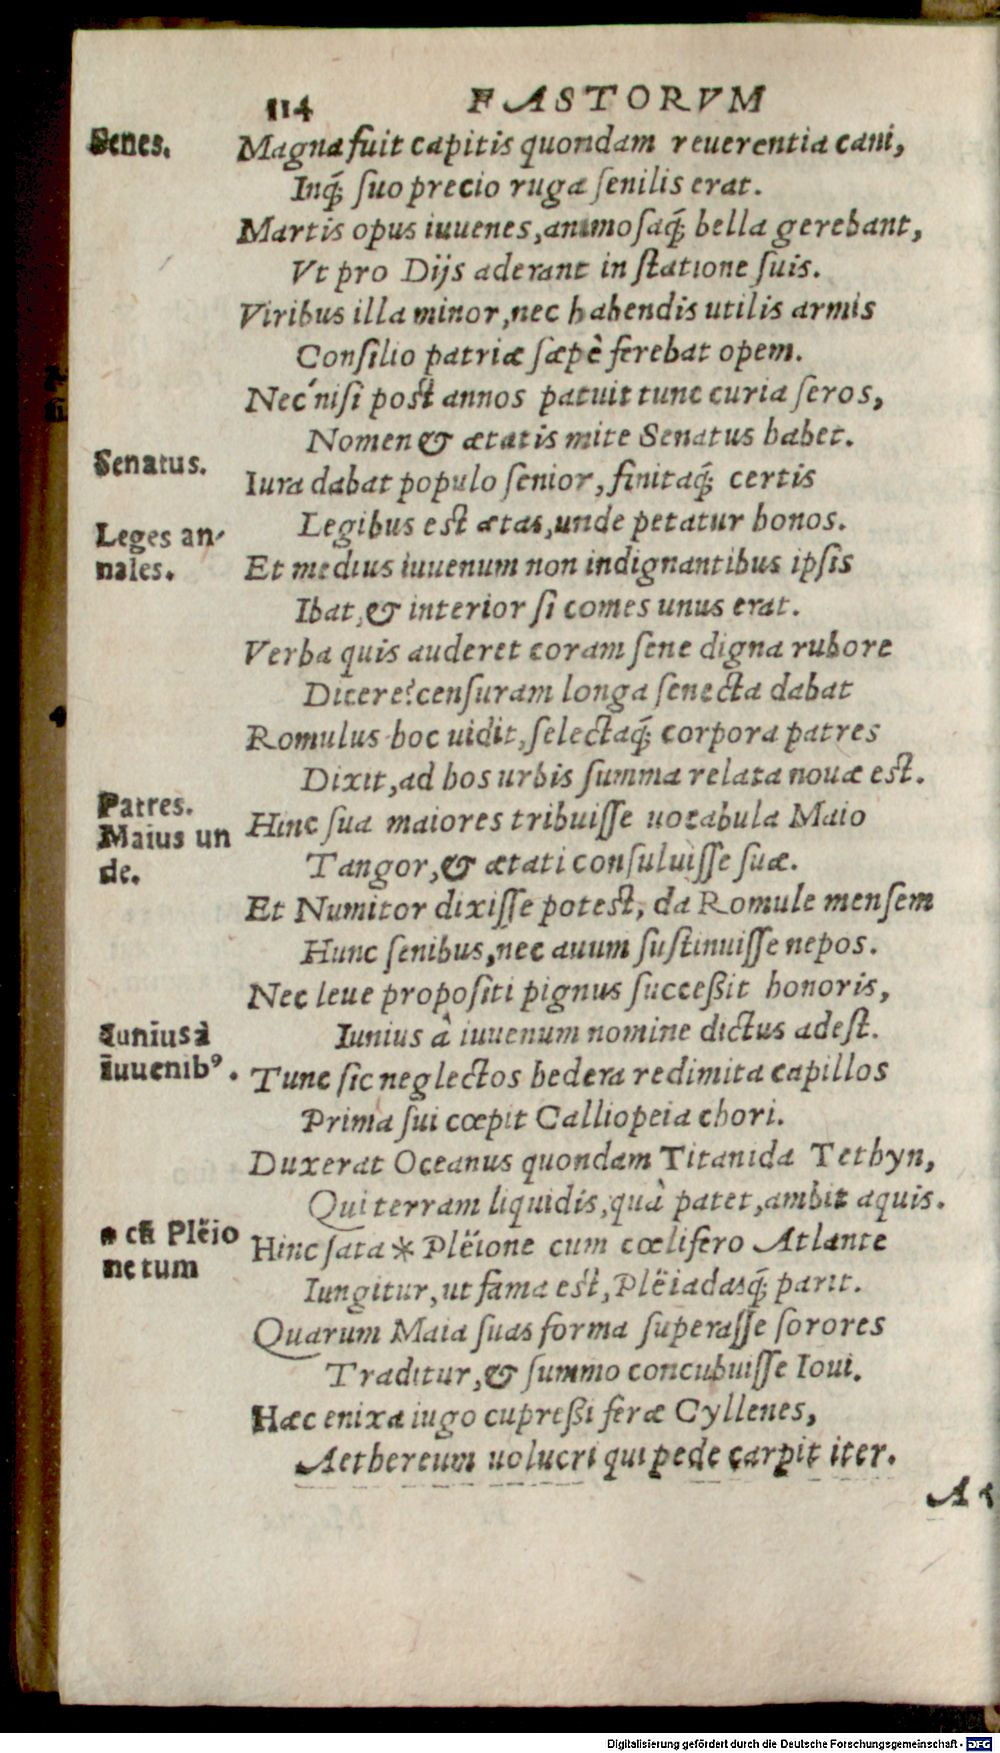 114 FASTORVM
Senes.
Magna fuit capitis quondam reuerentia cani,
Inq́; ſuo precio ruga ſenilis erat.
Martis opus iuuenes, animoſaq́; bella gerebant,
Vt pro Dijs aderant in ſtatione ſuis.
Viribus illa minor, nec habendis utilis armis
Conſilio patriæ ſæpè ferebat opem.
Nec niſi poſt annos patuit tunc curia ſeros,
Nomen & ætatis mite Senatus habet.
Senatus.
Iura dabat populo ſenior, finitaq́; certis
Legibus eſt ætas, unde petatur honos.
Leges an-
nales.
Et medius iuuenum non indignantibus ipſis
Ibat, & interior ſi comes unus erat.
Verba quis auderet coram ſene digna rubore
Dicere? cenſuram longa ſenecta dabat
Romulus hoc uidit, ſelectaq́; corpora patres
Dixit, ad hos urbis ſumma relata nouæ eſt.
Patres.
Maius un
de.
Hinc ſua maiores tribuiſſe uocabula Maio
Tangor, & ætati conſuluiſſe ſuæ.
Et Numitor dixiſſe poteſt, da Romule menſem
Hunc ſenibus, nec auum ſuſtinuiſſe nepos.
Nec leue propoſiti pignus ſucceßit honoris,
Iunius à iuuenum nomine dictus adeſt.
Iunius à
iuuenibꝰ.
Tunc ſic neglectos hedera redimita capillos
Prima ſui cœpit Calliopeia chori.
Duxerat Oceanus quondam Titanida Tethyn,
Qui terram liquidis, quà patet, ambit aquis.
Hinc ſata * Plëione cum cœlifero Atlante
Plëio
netum
Iungitur, ut fama eſt, Plëiadasq́; parit.
Quarum Maia ſuas forma ſuperaſſe ſorores
Traditur, & ſummo concubuiſſe Ioui.
Hæc enixa iugo cupreßi feræ Cyllenes,
Aethereum uolucri qui pede carpit iter.
Digitalisierung gefördert durch die Deutsche Forschungsgemeinschaft - DFG